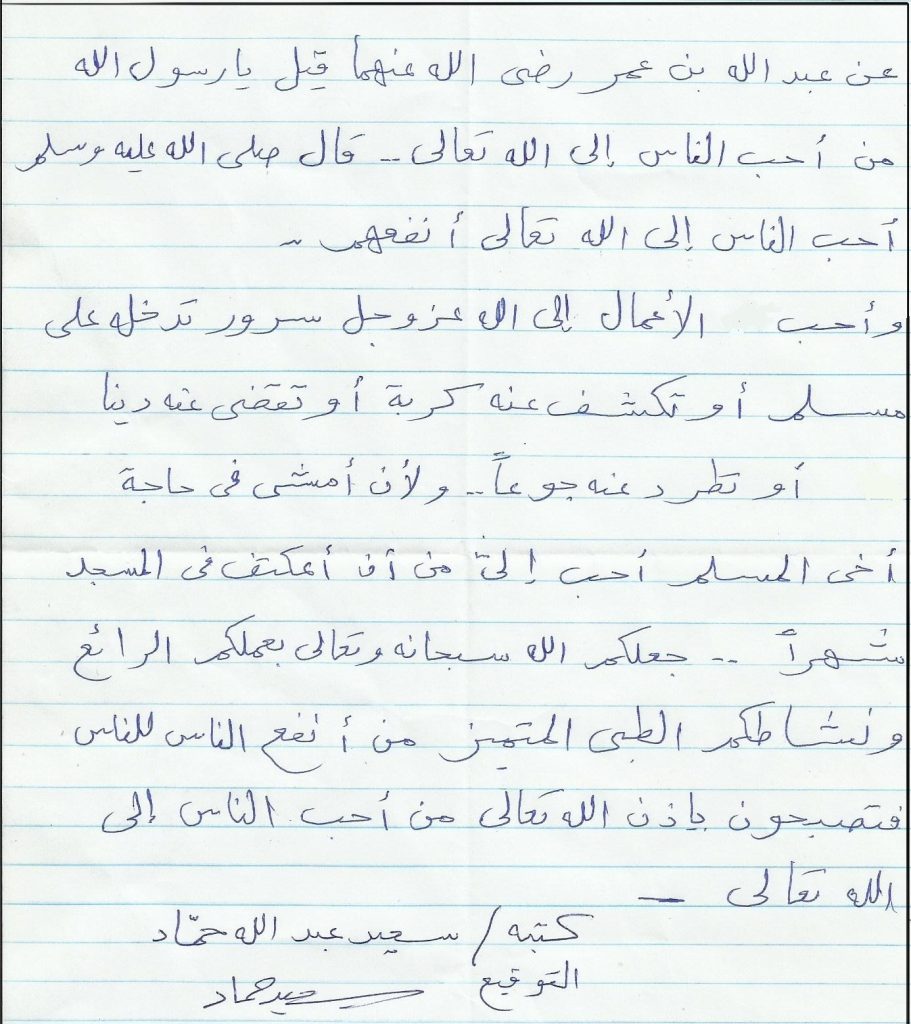 عن عبد الله بن عمر رضى الله عنهما قيل يا رسول الله
من أحب الناس إلى الله تعالى .. قال صلى الله عليه وسلم
أحب الناس إلى الله تعالى أنفعهم ..
وأحب الأعمال إلى الله عز وجل سرور تدخله على
مسلم أو تكشف عنه كربة أو تقضى عنه دينا
أو تطرد عنه جوعاً .. ولأن أمشى فى حاجة
أخى المسلم أحب إلىّ من أن أعتكف فى المسجد
شهراً .. جعلكم الله سبحانه وتعالى بعملكم الرائع
ونشاطكم الطبى المتميز من أنفع الناس للناس
فتصبحون بإذن الله تعالى من أحب الناس إلى
الله تعالى —
كتبه / سعيد عبد الله حمّاد
التوقيع سعيد حماد